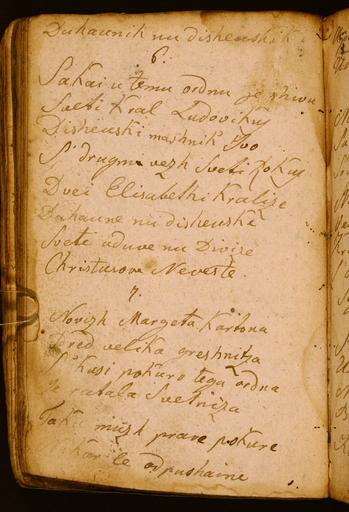 Duhaunik nu disheuskih
6.
Sakai u temu ordnu je shivu
Sveti Kral Ludovikus
Disheuski mashnik Ivo
S' drugmi vezh Sveti Rokus
Dvei Elisabethi Kralize
Duhaune nu disheuske
Svete uduve nu Divize
Christusove Neveste.
7.
Novizh Margeta Kartona
Pred velika greshniza
S' kusi pokuro tega ordna
ratala Svetniza
Taku muzh prave pokure
le odpushaine